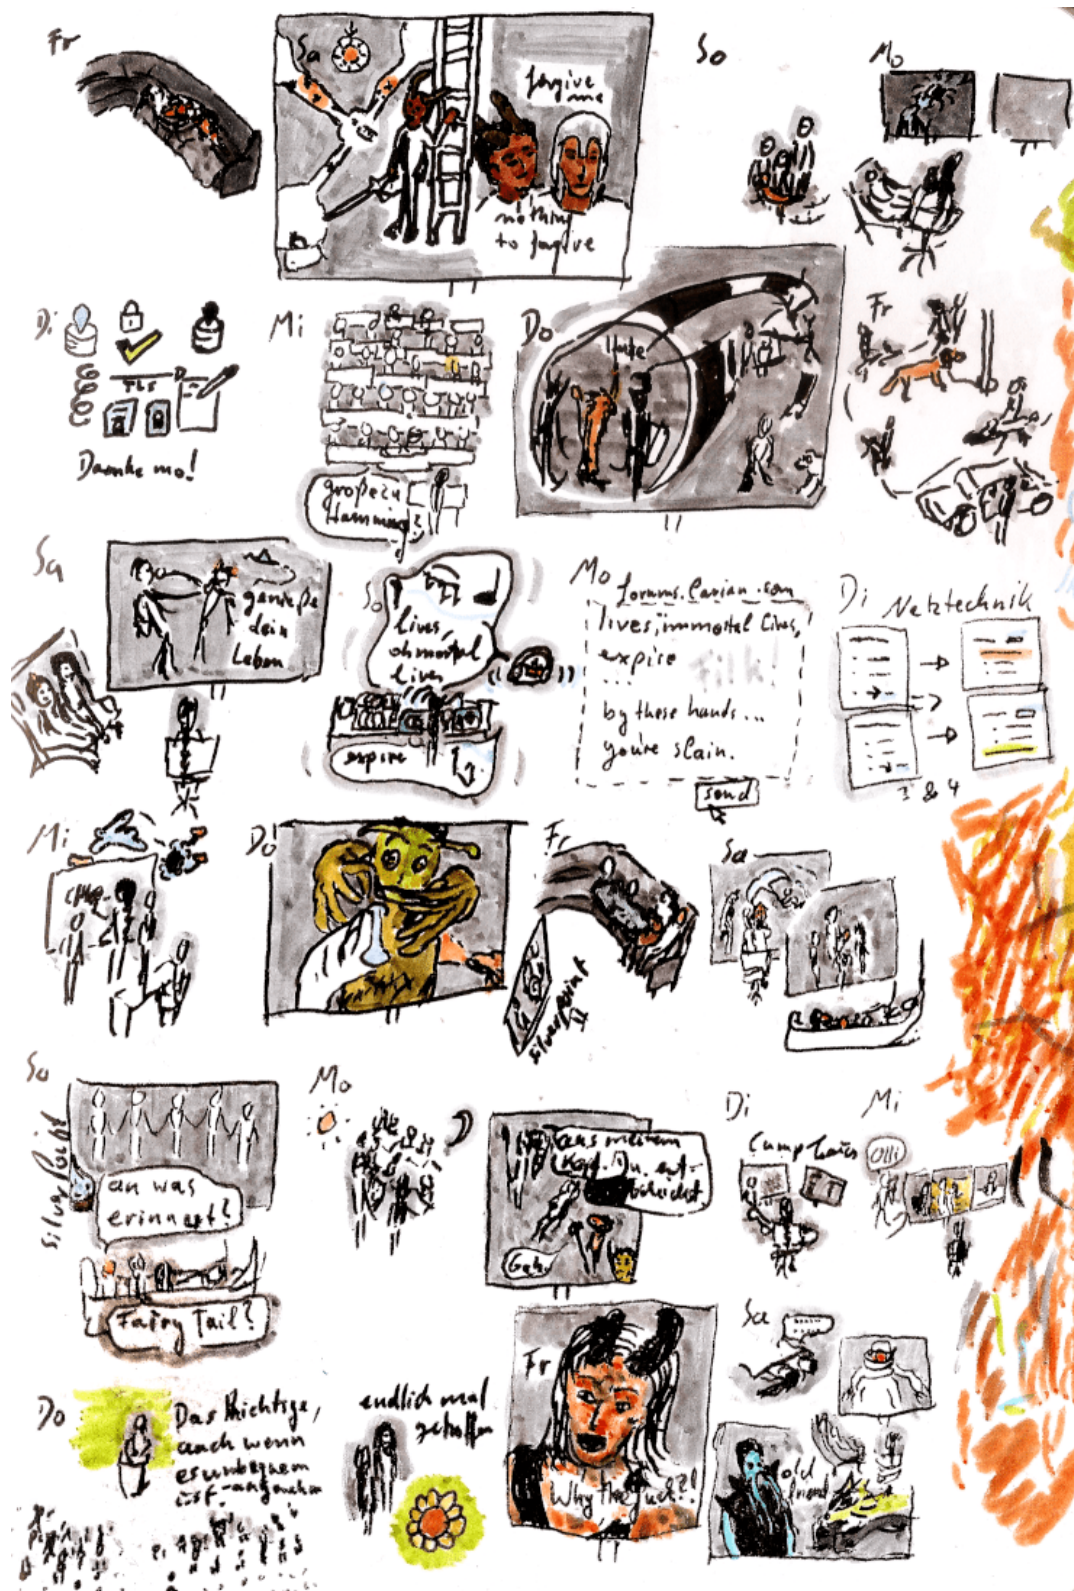 Fr
Sa
forgive
me
nothing
to forgive
So
Mo
Di
TLS
Danke mo!
Mi
große in
Hamming?
Do
Hake
Fr
Sa
genieße
dein
Leben
So
lives,
oh mortal
lives
expire
Mo
forums.larian.com
lives, immortal lives,
expire
filk!
...
by these hands...
you're slain.
send
Di
Netztechnik
3 & 4
Mi
Do
Fr
silverpoint
II
Sa
So
silverpoint
an was
erinnert?
Fairy Tail?
Mo
aus meinem
Kopf. Du ent-
scheidest.
Gah.
Di
Mi
Olli
Do
Das Richtige,
auch wenn
es unbequem
ist - angenehm
endlich mal
getroffen
Fr
Why the fuck?!
Sa
old
friend